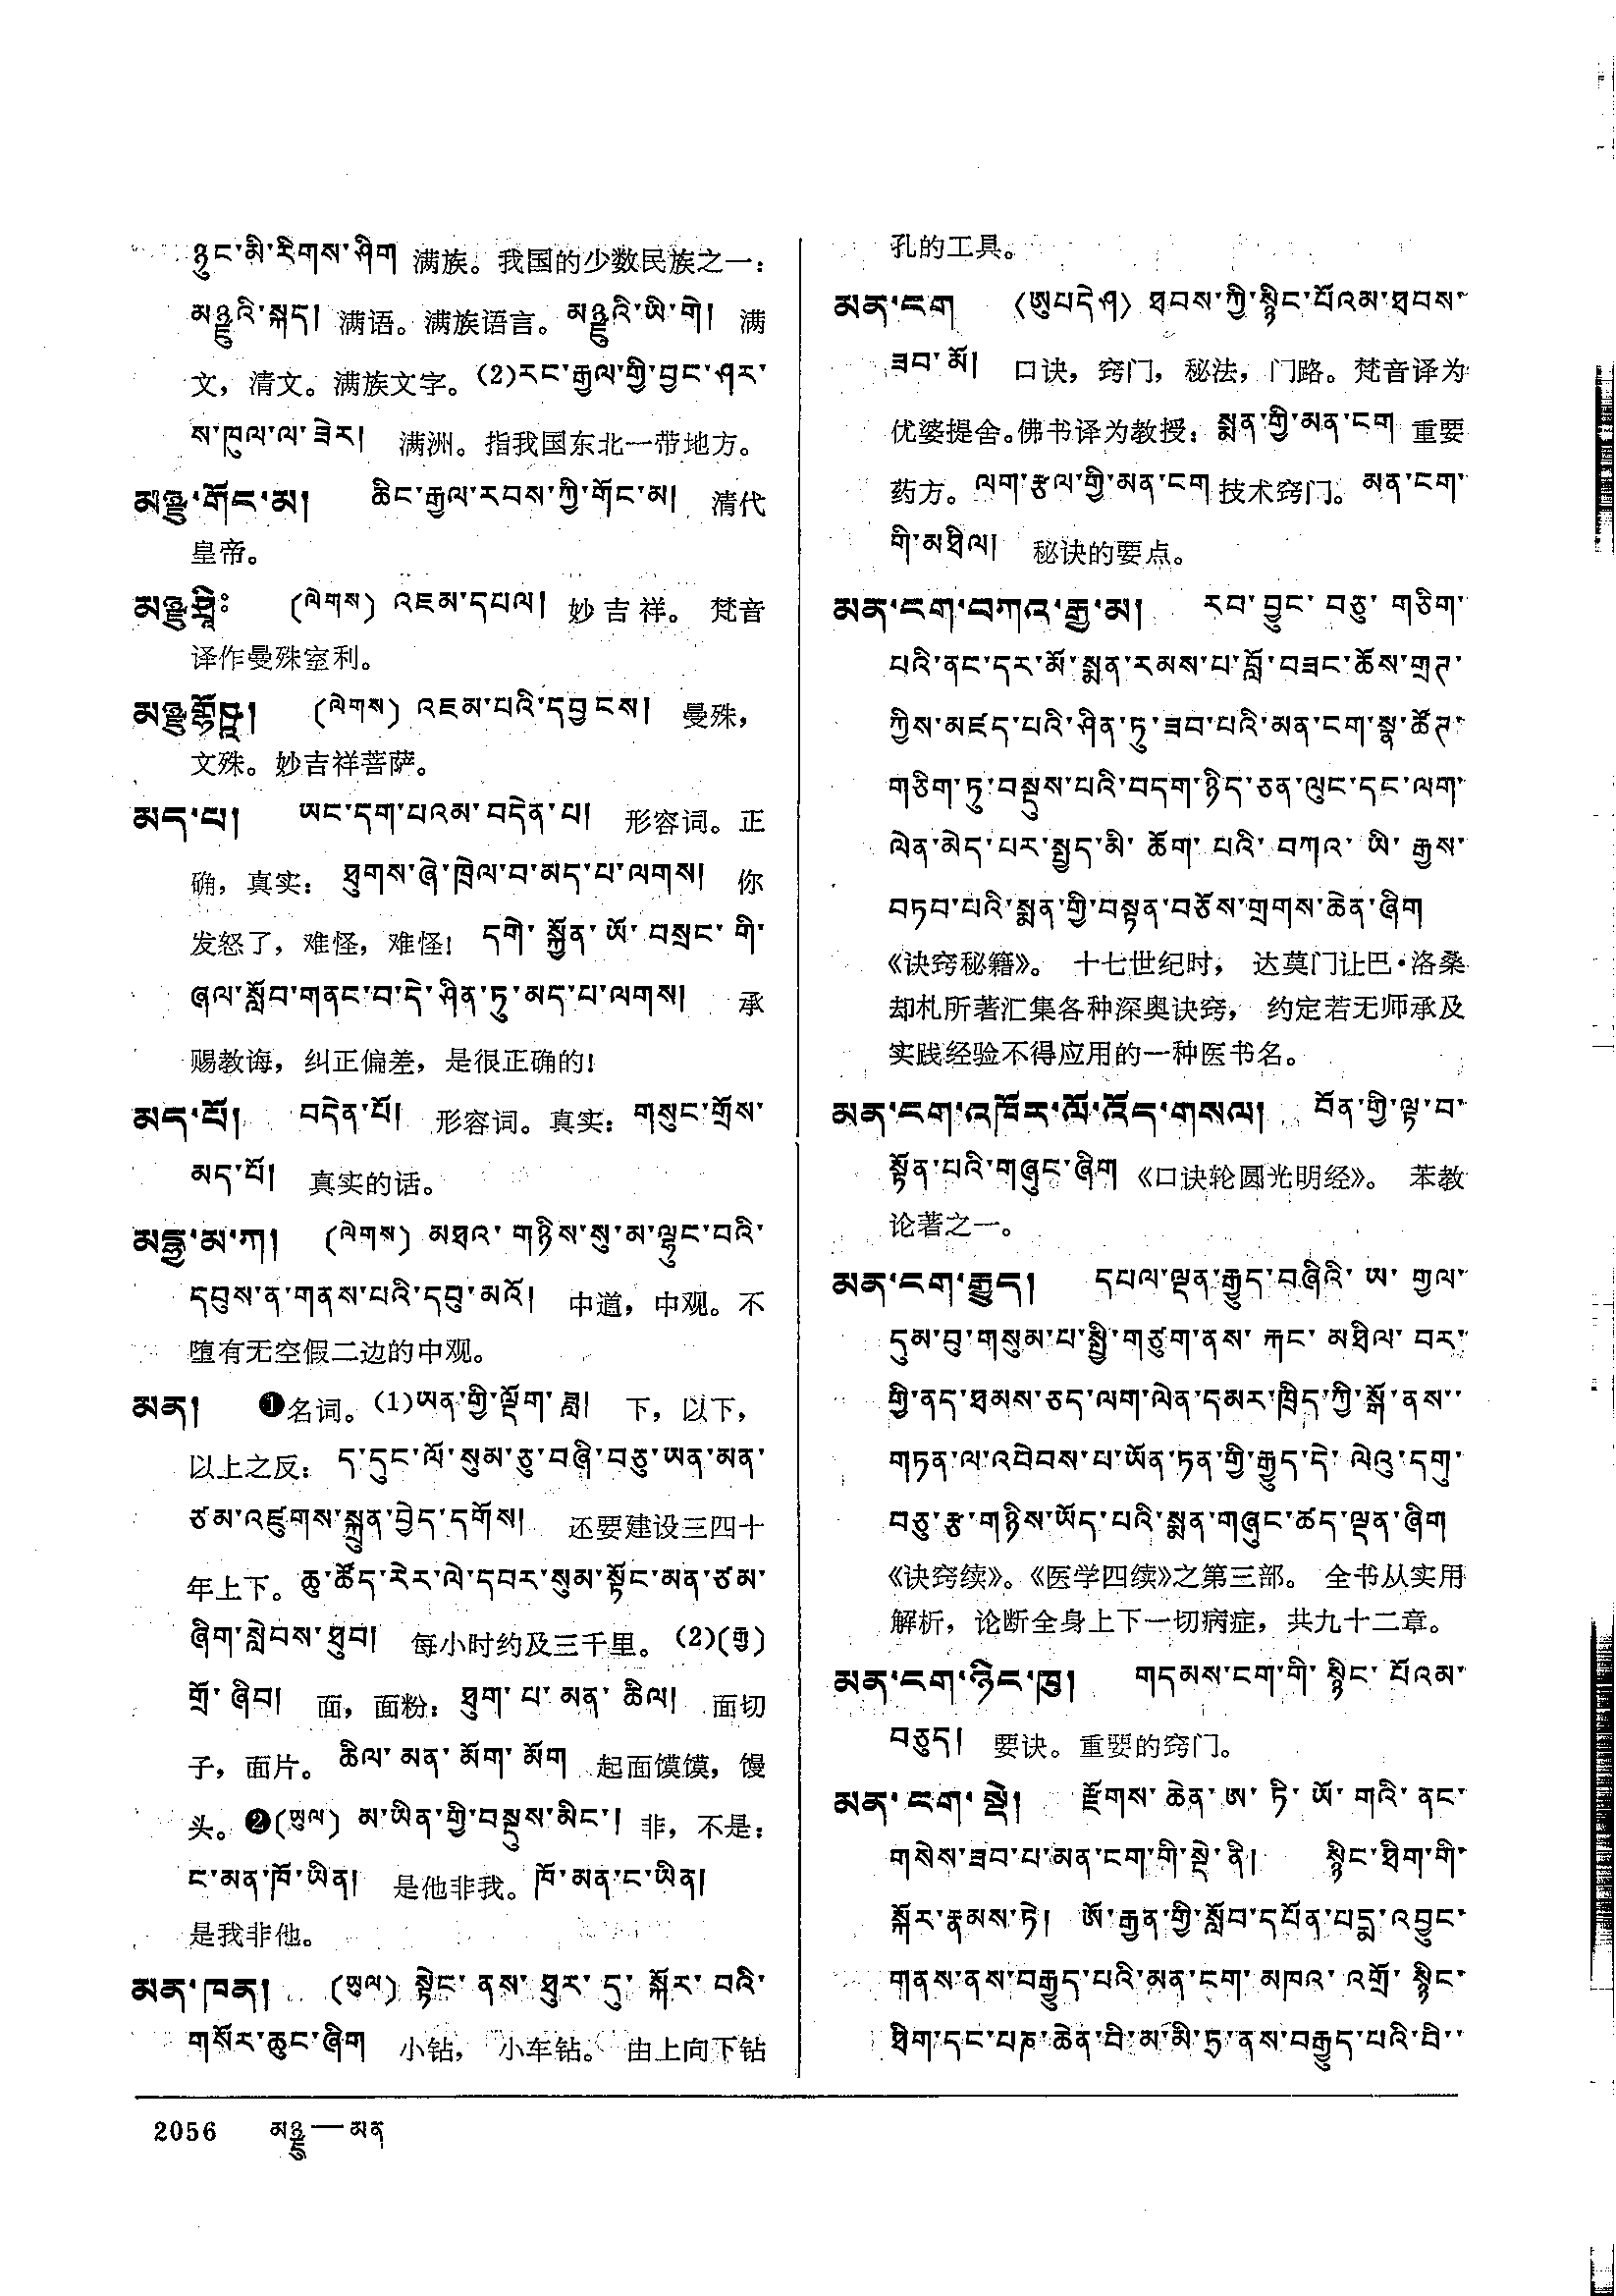 ཉུང་མི་རིགས་ཤིག 满族。我国的少数民族之一：
མཉྫུའི་སྐད། 满语。满族语言。མཉྫུའི་ཡི་གེ། 满
文，清文。满族文字。(2)རང་རྒྱལ་གྱི་བྱང་ཤར་
ས་ཁུལ་ལ་ཟེར། 满洲。指我国东北一带地方。
མཉྫུ་གོང་མ། ཆིང་རྒྱལ་རབས་ཀྱི་གོང་མ། 清代
皇帝。
མཉྫུ་ཤྲཱིཿ (ལེགས) འཇམ་དཔལ། 妙吉祥。 梵音
译作曼殊室利。
མཉྫུ་གྷོཥ། (ལེགས) འཇམ་པའི་དབྱངས། 曼殊，
文殊。妙吉祥菩萨。
མད་པ། ཡང་དག་པའམ་བདེན་པ། 形容词。正
确，真实： ཐུགས་ཞེ་ཁྲེལ་བ་མད་པ་ལགས། 你
发怒了，难怪，难怪！ དགེ་སྐྱོན་ཡོ་བསྲང་གི་
ཞལ་སློབ་གནང་བ་དེ་ཤིན་ཏུ་མད་པ་ལགས། 承
赐教诲，纠正偏差，是很正确的！
མད་པོ། བདེན་པོ། 形容词。真实： གསུང་གྲོས་
མད་པོ། 真实的话。
མདྷྱ་མ་ཀ། (ལེགས) མཐའ་གཉིས་སུ་མ་ལྷུང་བའི་
དབུས་ན་གནས་པའི་དབུ་མའོ། 中道，中观。不
堕有无空假二边的中观。
མན། ❶名词。(1)ཡན་གྱི་ལྡོག་ཟླ། 下，以下，
以上之反： ད་དུང་ལོ་སུམ་ཅུ་བཞི་བཅུ་ཡན་མན་
ཙམ་འཛུགས་སྐྲུན་བྱེད་དགོས། 还要建设三四十
年上下。ཆུ་ཚོད་རེར་ལེ་དབར་སུམ་སྟོང་མན་ཙམ་
ཞིག་སླེབས་ཐུབ། 每小时约及三千里。(2)(རྒྱ)
གྲོ་ཞིབ། 面，面粉： ཐུག་པ་མན་ཆིལ། 面切
子，面片。 ཆིལ་མན་མོག་མོག 起面馍馍，馒
头。❷(ཡུལ) མ་ཡིན་གྱི་བསྡུས་མིང་། 非，不是：
ང་མན་ཁོ་ཡིན། 是他非我。ཁོ་མན་ང་ཡིན།
是我非他。
མན་ཁན། (ཡུལ) སྟེང་ནས་ཐུར་དུ་སྐོར་བའི་
གསོར་ཆུང་ཞིག 小钻， 小车钻。 由上向下钻
孔的工具。
མན་ངག (ཨུཔདེཤ) ཐབས་ཀྱི་སྙིང་པོའམ་ཐབས་
ཟབ་མོ། 口诀，窍门，秘法，门路。梵音译为
优婆提舍。佛书译为教授： སྨན་གྱི་མན་ངག 重要
药方。ལག་རྩལ་གྱི་མན་ངག 技术窍门。 མན་ངག་
གི་མཐིལ། 秘诀的要点。
མན་ངག་བཀའ་རྒྱ་མ། རབ་བྱུང་བཅུ་གཅིག་
པའི་ནང་དར་མོ་སྨན་རམས་པ་བློ་བཟང་ཆོས་གྲཊ་
ཀྱིས་མཛད་པའི་ཤིན་ཏུ་ཟབ་པའི་མན་ངག་སྣ་ཚོཊ་
གཅིག་ཏུ་བསྡུས་པའི་བདག་ཉིད་ཅན་ལུང་དང་ལག་
ལེན་མེད་པར་སྤྱད་མི་ཆོག་པའི་བཀའ་ཡི་རྒྱས་
བཏབ་པའི་སྨན་གྱི་བསྟན་བཅོས་གྲགས་ཆེན་ཞིག
《诀窍秘籍》。 十七世纪时， 达莫门让巴·洛桑
却札所著汇集各种深奥诀窍， 约定若无师承及
实践经验不得应用的一种医书名。
མན་ངག་འཁོར་ལོ་འོད་གསལ། བོན་གྱི་ལྟ་བ་
སྟོན་པའི་གཞུང་ཞིག 《口诀轮圆光明经》。 苯教
论著之一。
མན་ངག་རྒྱུད། དཔལ་ལྡན་རྒྱུད་བཞིའི་ཨ་གྱལ་
དུམ་བུ་གསུམ་པ་སྤྱི་གཙུག་ནས་རྐང་མཐིལ་བར་
གྱི་ནད་ཐམས་ཅད་ལག་ལེན་དམར་ཁྲིད་ཀྱི་སྒོ་ནས་
གཏན་ལ་འབེབས་པ་ཡོན་ཏན་གྱི་རྒྱུད་དེ་ལེའུ་དགུ་
བཅུ་རྩ་གཉིས་ཡོད་པའི་སྨན་གཞུང་ཚད་ལྡན་ཞིག
《诀窍续》。《医学四续》之第三部。 全书从实用
解析，论断全身上下一切病症，共九十二章。
མན་ངག་ཉིང་ཁུ། གདམས་ངག་གི་སྙིང་པོའམ་
བཅུད། 要诀。重要的窍门。
མན་ངག་སྡེ། རྫོགས་ཆེན་ཨ་ཏི་ཡོ་གའི་ནང་
གསེས་ཟབ་པ་མན་ངག་གི་སྡེ་ནི། སྙིང་ཐིག་གི་
སྐོར་རྣམས་ཏེ། ཨོ་རྒྱན་གྱི་སློབ་དཔོན་པདྨ་འབྱུང་
གནས་ནས་བརྒྱུད་པའི་མན་ངག་མཁའ་འགྲོ་སྙིང་
ཐིག་དང་པཎ་ཆེན་བི་མ་མི་ཏྲ་ནས་བརྒྱུད་པའི་བི་
2056 མཉྫུ—མན